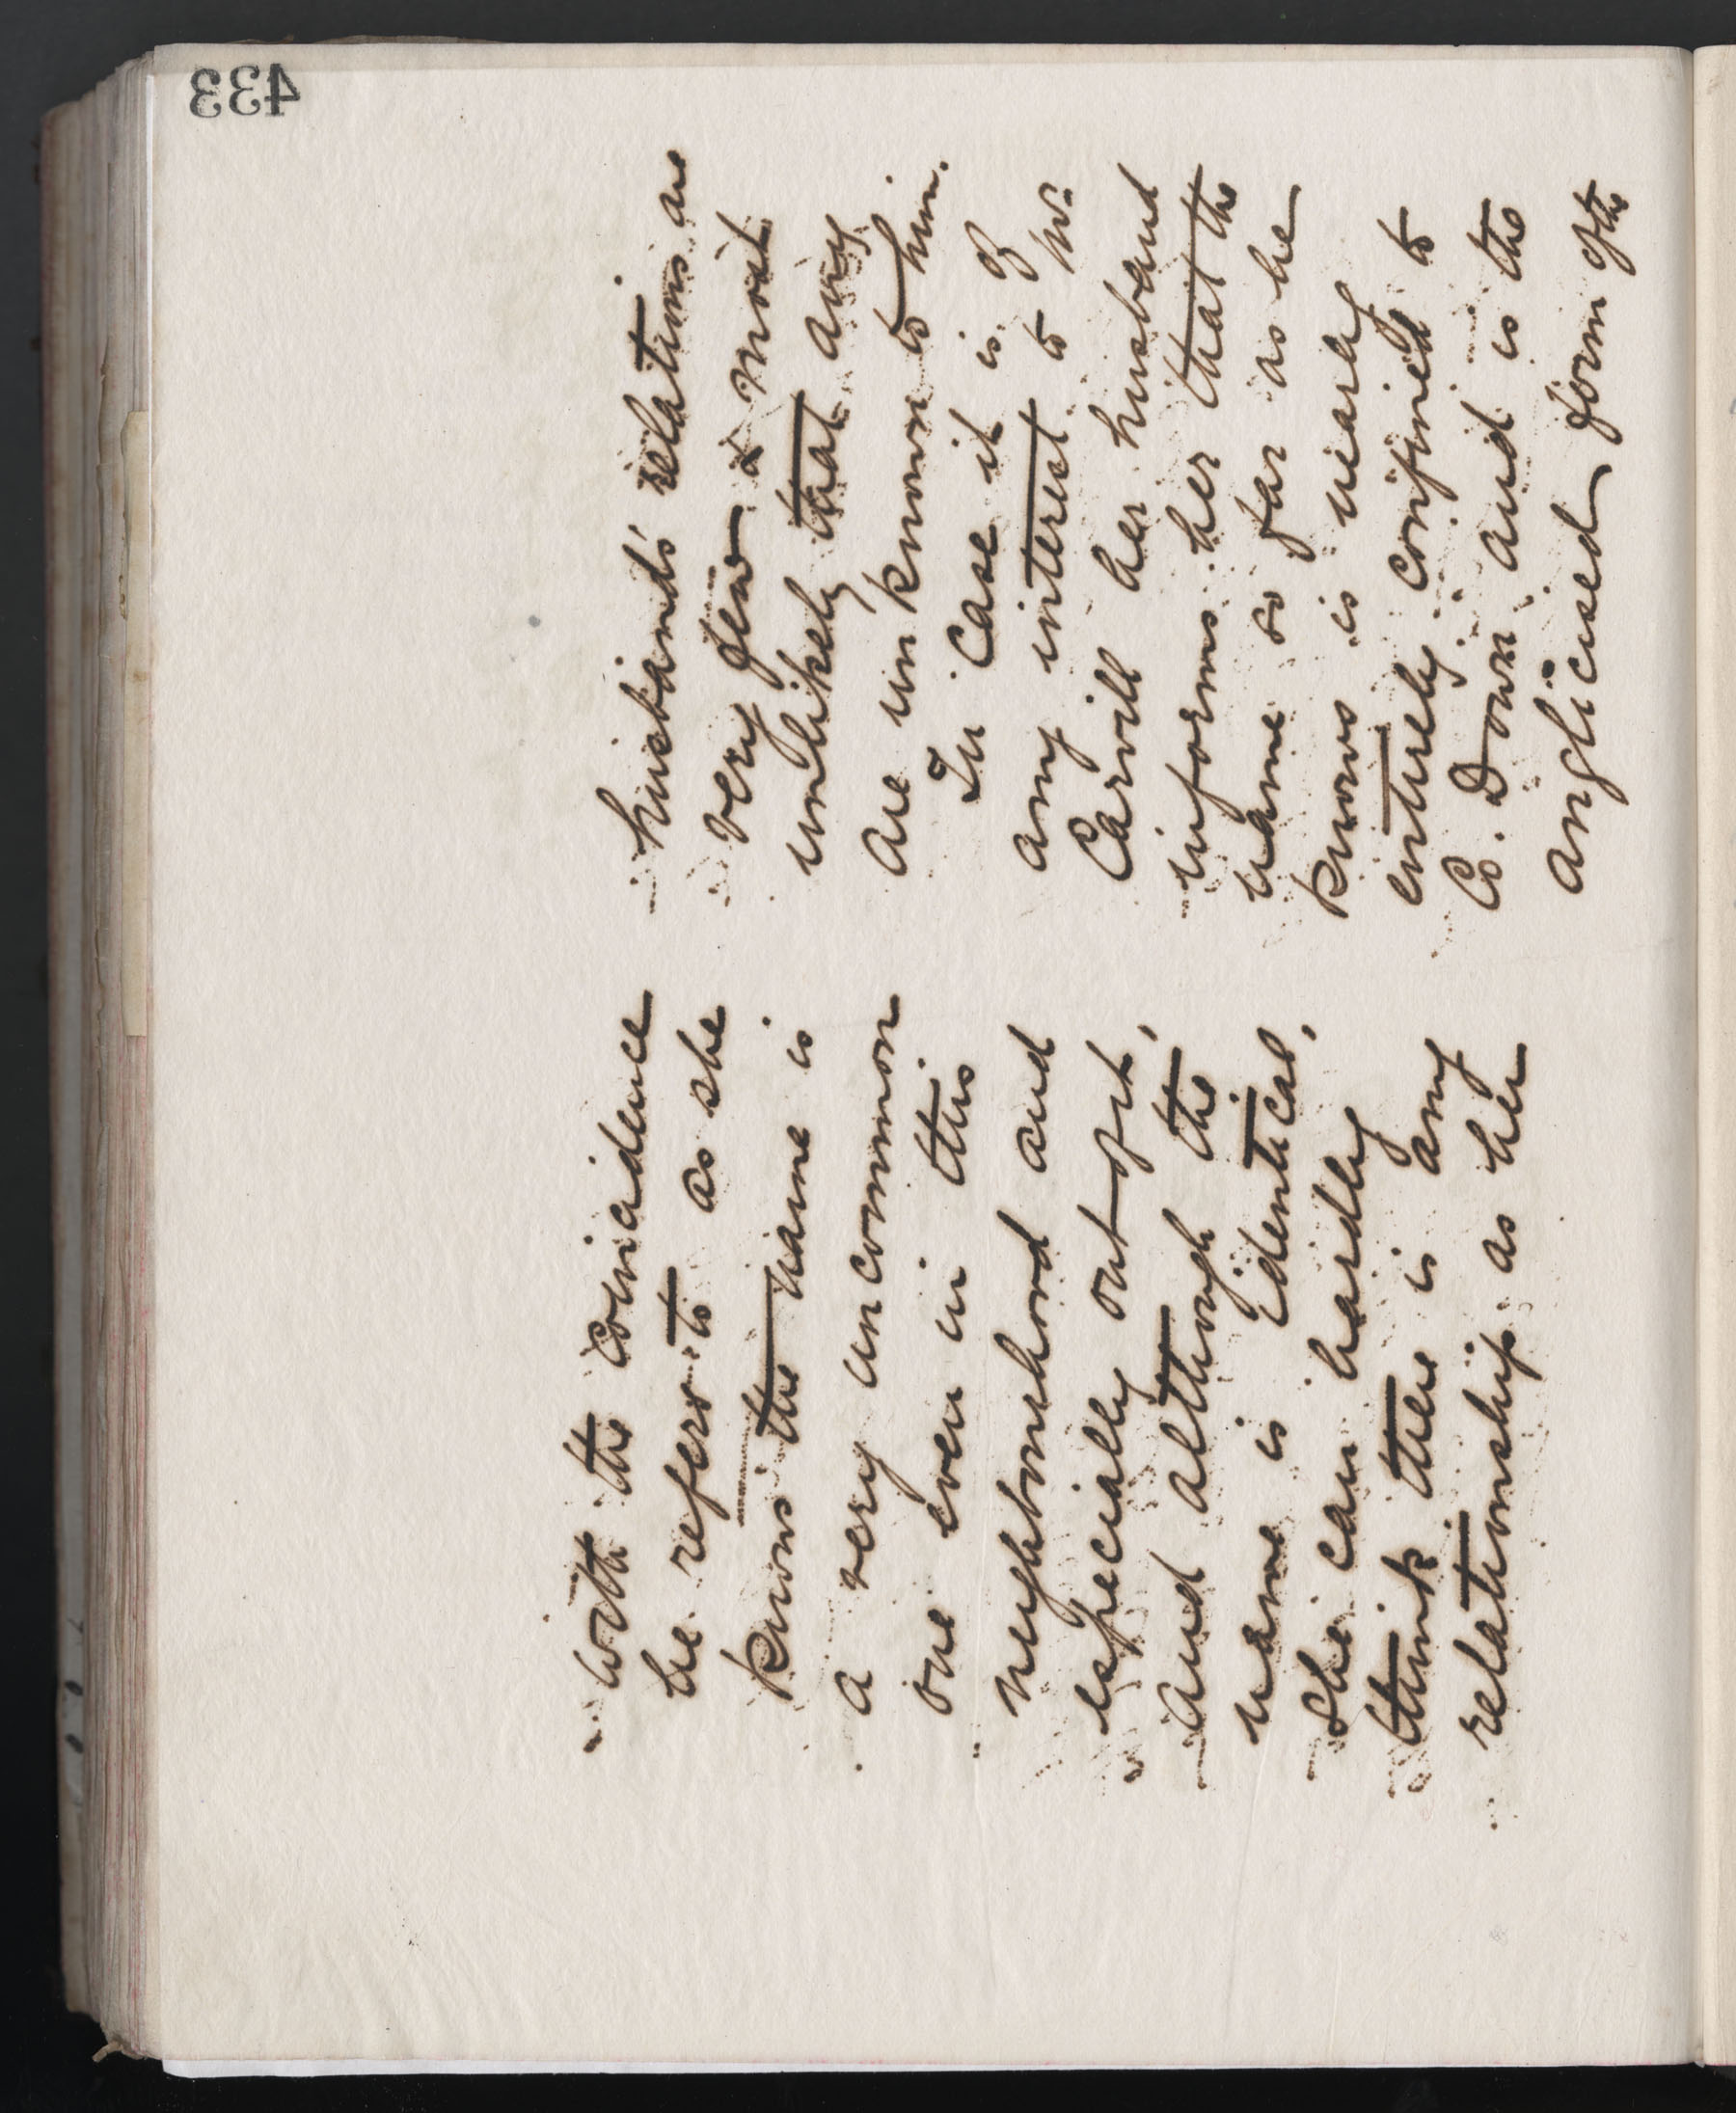 433
with the coincidence
he refers to as she
knows the name is
a very uncommon
one even in this
neighbourhood and
especially out of it,
and although the
name is identical,
she can hardly
think there is any
relationship as her
husband's relations are
very few & most
unlikely that any
are unknown to him.
In case it is of
any interest to Mr.
Carvill her husband
informs her that the
name so far as he
knows is nearly
entirely confined to
Co. Down and is the
anglicised form of the